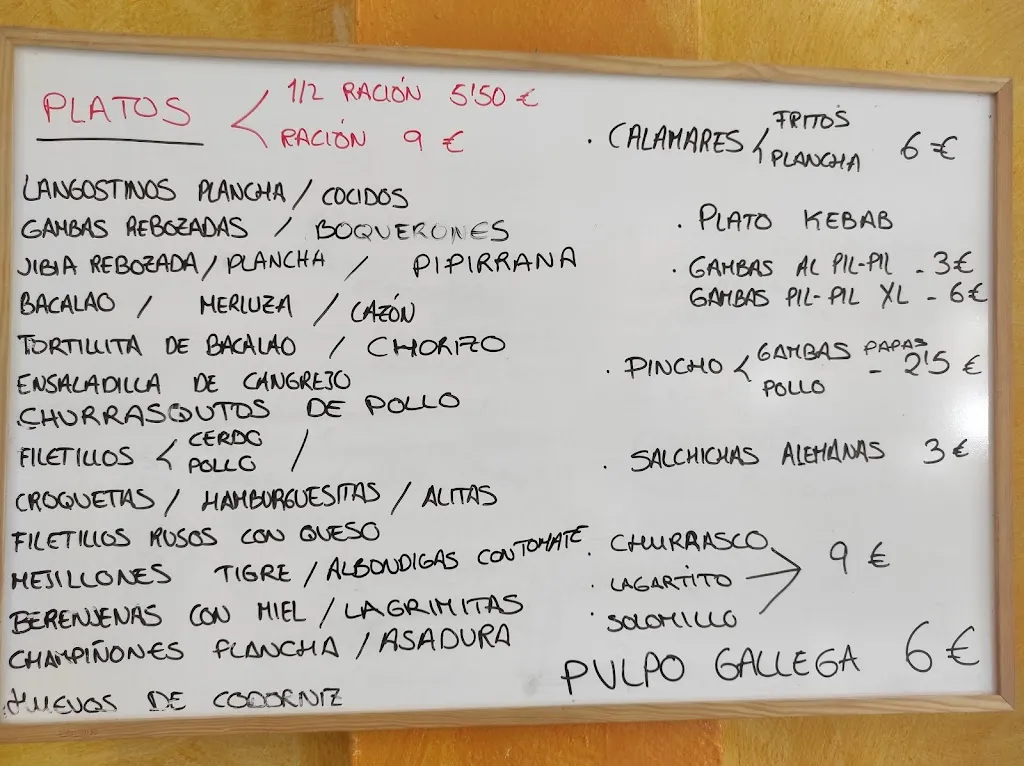 PLATOS
1/2 RACIÓN 5'50 €
RACIÓN 9 €
LANGOSTINOS PLANCHA / COCIDOS
GAMBAS REBOZADAS / BOQUERONES
JIBIA REBOZADA / PLANCHA / PIPIRRANA
BACALAO / MERLUZA / CAZÓN
TORTILLITA DE BACALAO / CHORIZO
ENSALADILLA DE CANGREJO
CHURRASQUTOS DE POLLO
FILETILLOS < CERDO
POLLO /
CROQUETAS / HAMBURGUESITAS / ALITAS
FILETILLOS RUSOS CON QUESO
MEJILLONES TIGRE / ALBONDIGAS CON TOMATE
BERENJENAS CON MIEL / LAGRIMITAS
CHAMPIÑONES PLANCHA / ASADURA
HUEVOS DE CODORNIZ
· CALAMARES < FRITOS
PLANCHA 6 €
· PLATO KEBAB
· GAMBAS AL PIL-PIL - 3€
GAMBAS PIL-PIL XL - 6€
· PINCHO < GAMBAS PAPAS
POLLO - 2'5 €
· SALCHICHAS ALEMANAS 3 €
· CHURRASCO
· LAGARTITO 9 €
· SOLOMILLO
PULPO GALLEGA 6 €